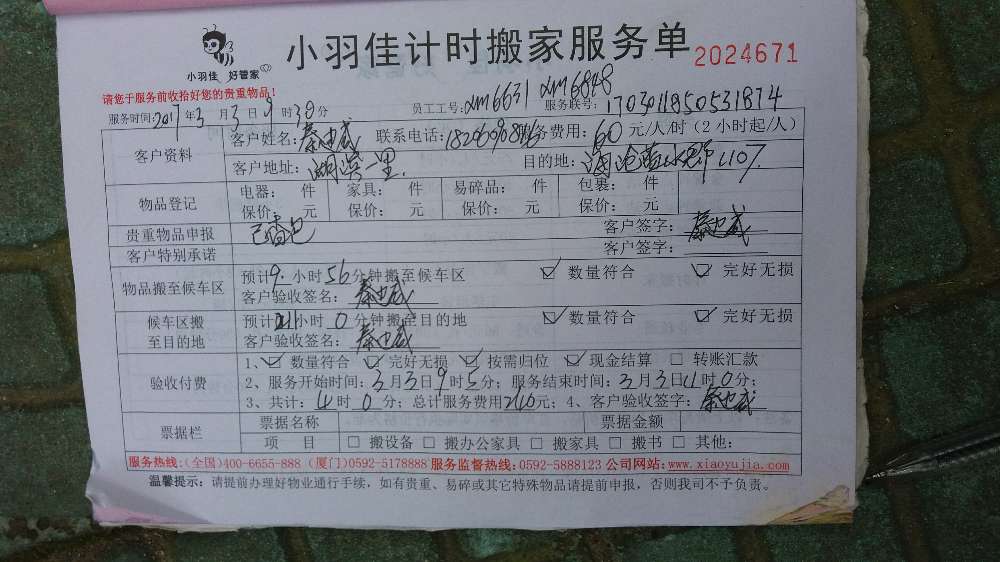 小羽佳 好管家
小羽佳计时搬家服务单
2024671
请您于服务前收拾好您的贵重物品！
服务时间：2017年3月3日9时30分 员工工号：xm6631 xm6848 服务联号：170301185053 1874
客户资料
客户姓名： 联系电话： 服务费用：60元/人/时（2小时起/人）
客户地址：湖滨一里. 目的地：海沧蓝水郡 L107.
物品登记
电器： 件 家具： 件 易碎品： 件 包裹： 件
保价： 元 保价： 元 保价： 元 保价： 元
贵重物品申报 客户签字：
客户特别承诺 客户签字：
物品搬至候车区
预计9.小时56分钟搬至候车区 ☑ 数量符合 ☑ 完好无损
客户验收签名：
候车区搬至目的地
预计小时0分钟搬至目的地 ☑ 数量符合 ☑ 完好无损
客户验收签名：
验收付费
1、☑ 数量符合 ☑ 完好无损 ☑ 按需归位 ☑ 现金结算 □ 转账汇款
2、服务开始时间：3月3日9时5分；服务结束时间：3月3日11时0分；
3、共计：时0分；总计服务费用240元；4、客户验收签字：
票据栏
票据名称 票据金额
项 目 □ 搬设备 □ 搬办公家具 □ 搬家具 □ 搬书 □ 其他：
服务热线：(全国)400-6655-888 (厦门)0592-5178888 服务监督热线：0592-5888123 公司网站：www.xiaoyujia.com
温馨提示：请提前办理好物业通行手续，如有贵重、易碎或其它特殊物品请提前申报，否则我司不予负责。